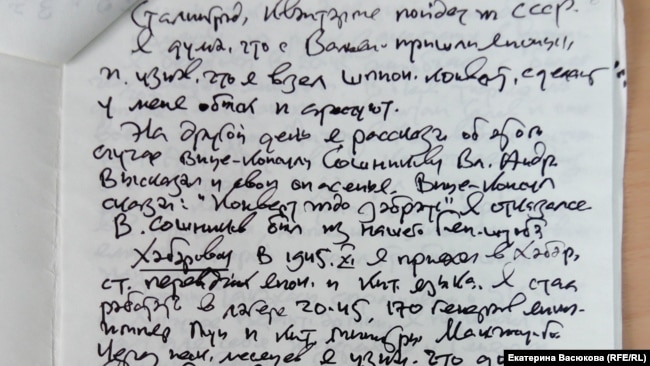 Сталинград, Квантуне пойдет т СССР.
Я дума, что с Ваньки пришли японцы,
и узнав, что я взял шпион. конверт, сделают
у меня обыск и арестуют.
На другой день я рассказ об этом
случае Вице-консулу Сошникову Вл. Андр
Высказал и свои опасенья. Вице-консул
сказал: "Конверт надо забрать" Я отказался
В. Сошников был из нашего Ген-штаба
Хабаровск В 1945. XI я приехал в Хабар,
ст. переводчик япон. и кит. языка. Я стал
работать в лагере 20-45, 170 генералов япон.
импер Пу и и кит. министры Маньчжу-Го
Через нес. месяцев я узнал, что
Екатерина Васюкова (RFE/RL)